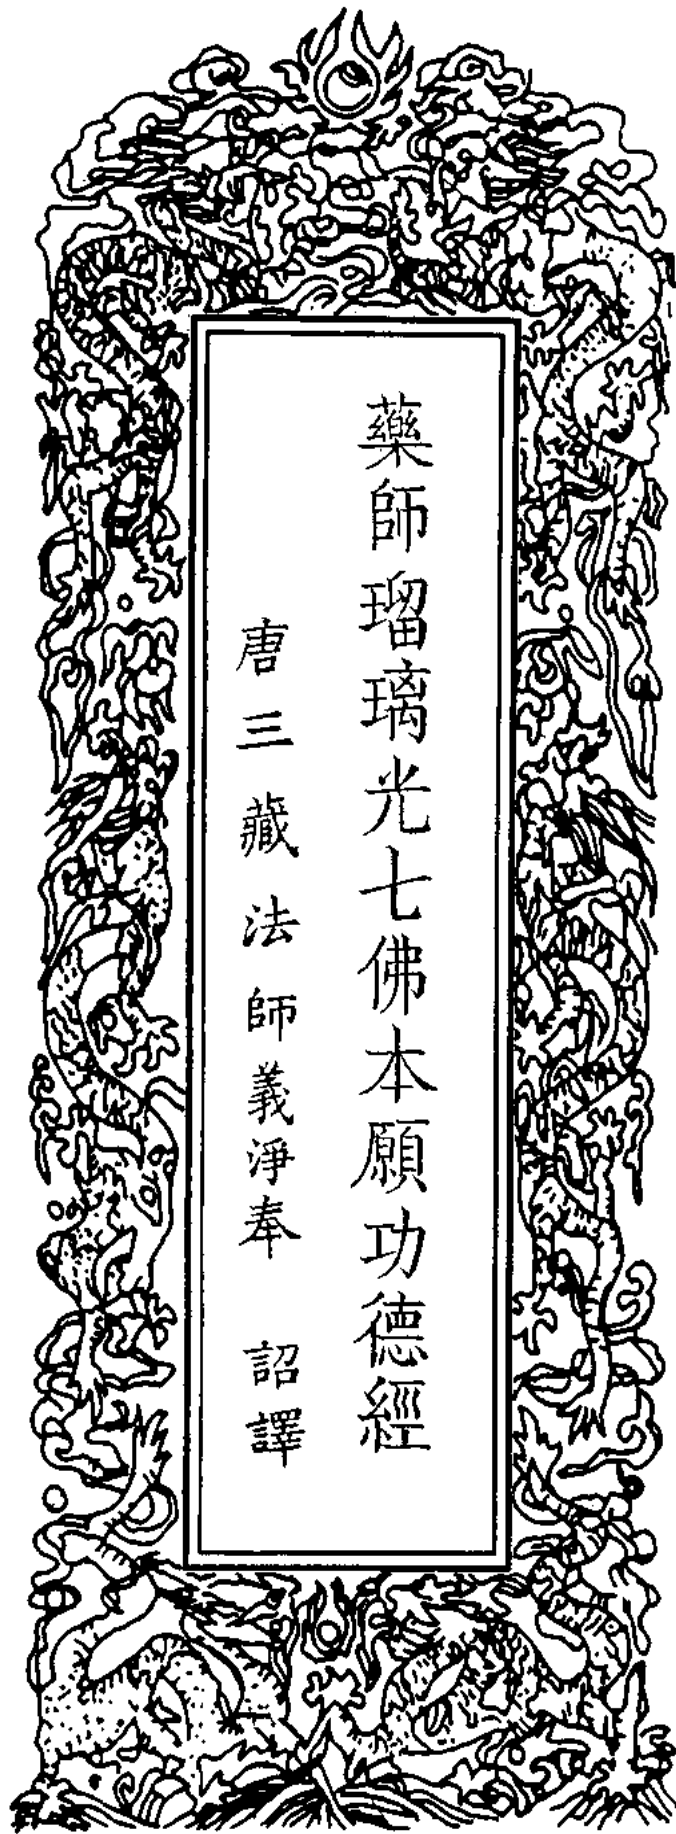 藥師瑠璃光七佛本願功德經
唐三藏法師義淨奉　詔譯